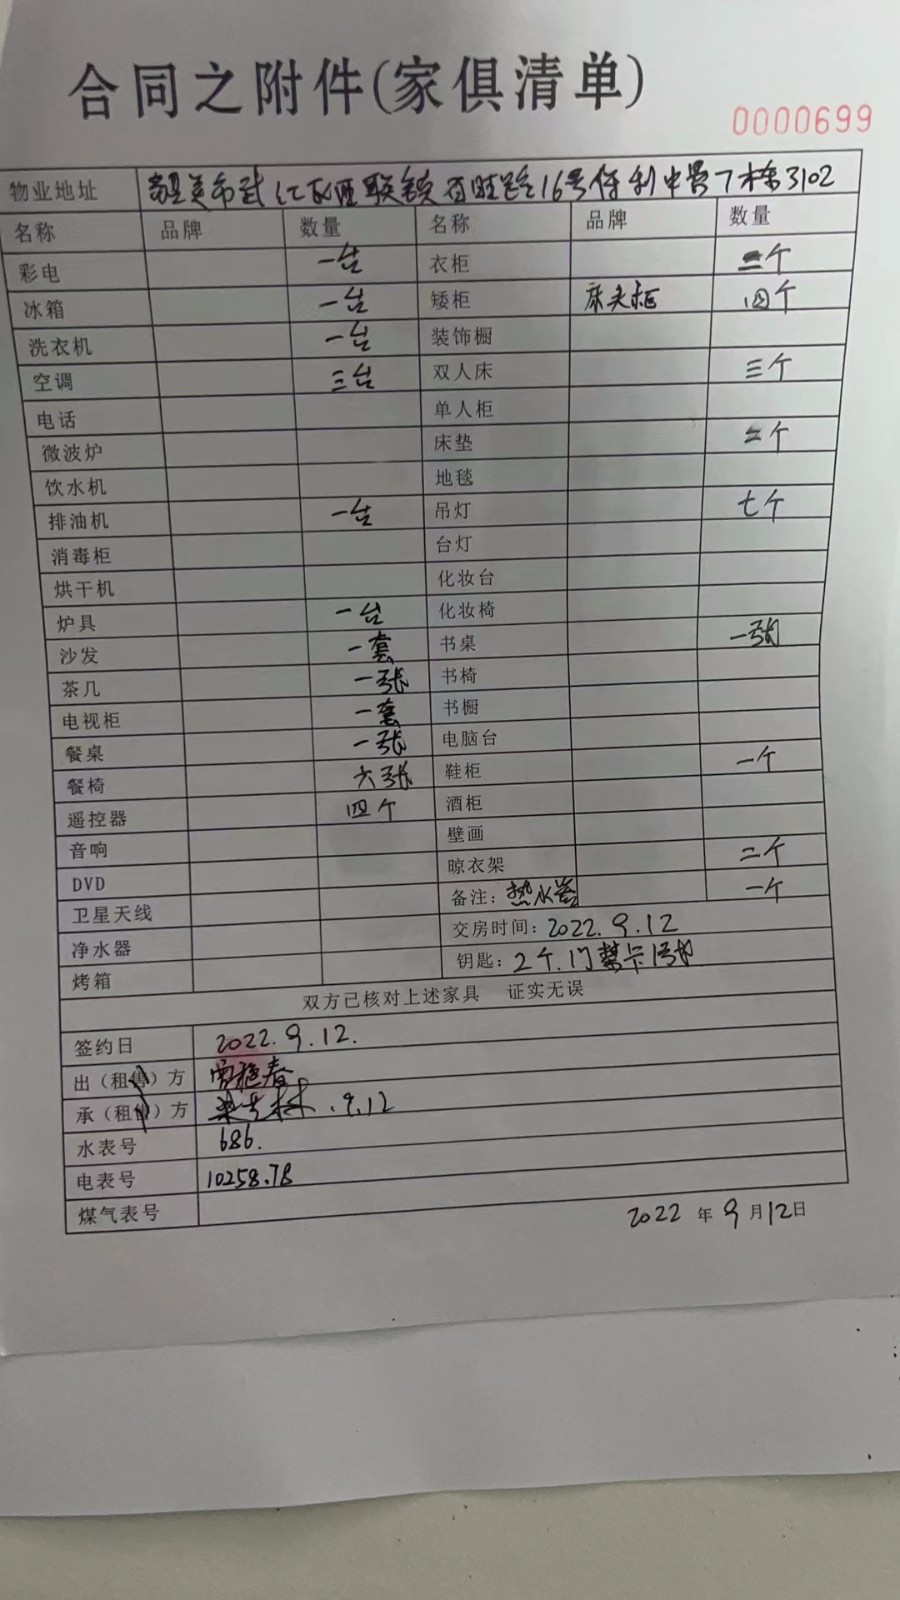 合同之附件(家俱清单)
0000699
物业地址 16号保利中景7栋3102
名称 品牌 数量 名称 品牌 数量
彩电 一台 衣柜 个
冰箱 一台 矮柜 床头柜 四个
洗衣机 一台 装饰橱
空调 三台 双人床 三个
电话 单人柜
微波炉 床垫 个
饮水机 地毯
排油机 一台 吊灯 七个
消毒柜 台灯
烘干机 化妆台
炉具 一台 化妆椅
沙发 一套 书桌 一张
茶几 一张 书椅
电视柜 一套 书橱
餐桌 一张 电脑台
餐椅 六张 鞋柜 一个
遥控器 四个 酒柜
音响 壁画
DVD 晾衣架 二个
卫星天线 备注：热水器 一个
净水器 交房时间：2022.9.12
烤箱 钥匙：2个.门禁卡1张
双方已核对上述家具 证实无误
签约日 2022.9.12.
出（租售）方
承（租）方 .9.12
水表号 686.
电表号 10258.78
煤气表号
2022 年 9 月 12 日